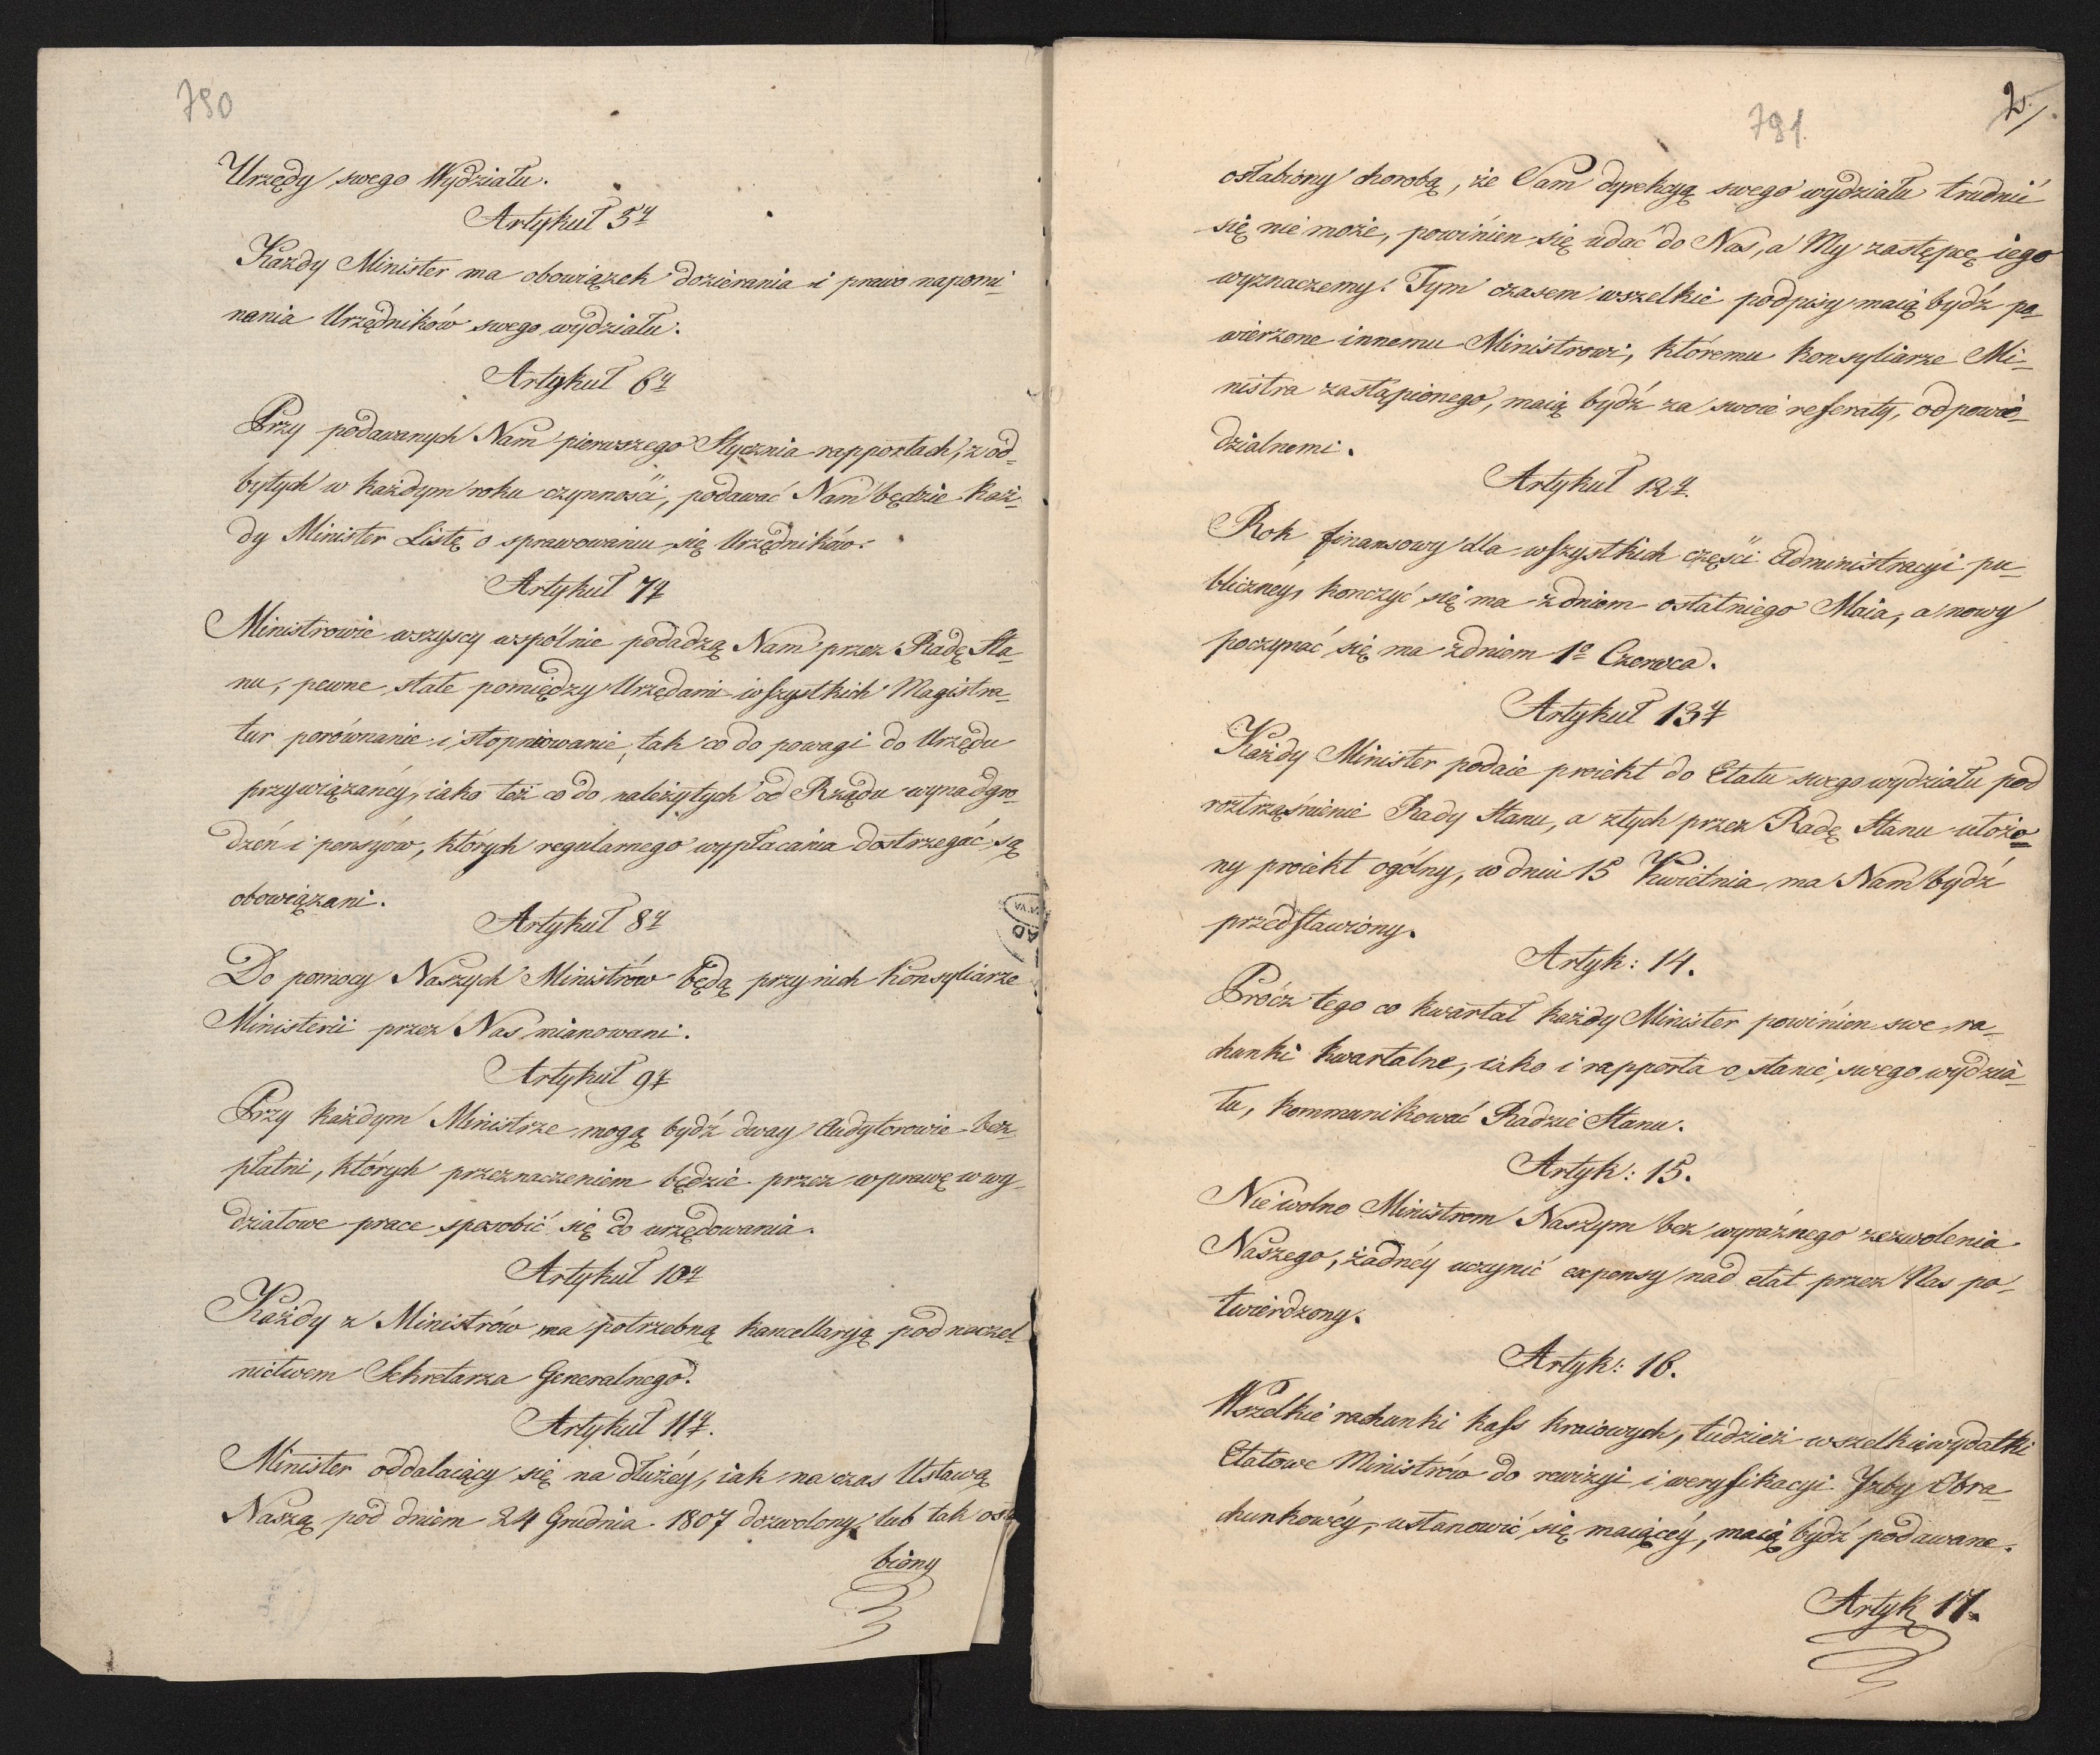 790
Urzędy swego Wydziału.
Artykuł 5ty
Każdy Minister ma obowiązek dozierania i prawo napomi-
nania Urzędników swego wydziału.
Artykuł 6ty
Przy podawanych Nam pierwszego Stycznia rapportach, z od-
bytych w każdym roku czynności, podawać Nam będzie każ-
dy Minister Listę o sprawowaniu się Urzędników.
Artykuł 7ty
Ministrowie wszyscy wspólnie podadzą Nam przez Radę Sta-
nu, pewne, stałe pomiędzy Urzędami wszystkich Magistra-
tur porównanie i stopniowanie, tak co do powagi do Urzędu
przywiązanéy, iako też co do należytych od Rządu wynadgro-
dzeń i pensyów, których regularnego wypłacania dostrzegać są
obowiązani.
Artykuł 8ty
Do pomocy Naszych Ministrów będą przy nich Konsyliarze
Ministerii przez Nas mianowani.
Artykuł 9ty
Przy każdym Ministrze mogą bydź dway Audytorowie bez-
płatni, których przeznaczeniem będzie przez wprawę w wy-
działowe prace sposobić się do urzędowania.
Artykuł 10ty
Każdy z Ministrów ma potrzebną kancellaryą pod naczel-
nictwem Sekretarza Generalnego.
Artykuł 11ty.
Minister oddalaiący się na dłużéy, iak na czas Ustawą
Naszą pod dniem 24 Grudnia 1807 dozwolony, lub tak osła
biony
2.
791.
osłabiony chorobą, że Sam dyrekcyą swego wydziału trudnić
się nie może, powinien się udać do Nas, a My zastępcę iego
wyznaczemy. Tym czasem wszelkie podpisy maią bydź po-
wierzone innemu Ministrowi, któremu Konsyliarze Mi-
nistra zastąpionego, maią bydź za swoie referaty, odpowie-
dzialnemi.
Artykuł 12ty.
Rok finansowy dla wszystkich części Administracyi pu-
bliczney, konczyć się ma z dniem ostatniego Maia, a nowy
poczynać się ma z dniem 1o Czerwca.
Artykuł 13ty
Każdy Minister podaie proiekt do Etatu swego wydziału pod
roztrząśnienie Rady Stanu, a z tych przez Radę Stanu ułożo-
ny proiekt ogólny, w dniu 15 Kwietnia ma Nam bydź
przedstawiony.
Artyk: 14.
Prócz tego co kwartał każdy Minister powinien swe ra-
chunki kwartalne, iako i rapporta o stanie swego wydzia-
łu, kommunikować Radzie Stanu.
Artyk: 15.
Nie wolno Ministrom Naszym bez wyraźnego zezwolenia
Naszego, żadnéy uczynić expensy nad etat przez Nas po-
twierdzony.
Artyk: 16.
Wszelkie rachunki kass kraiowych, tudzież wszelkie wydatki
Etatowe Ministrów do rewizyi i weryfikacyi Yzby Obra-
chunkowéy, ustanowić się maiącéy, maią bydź podawane.
Artyk 17.